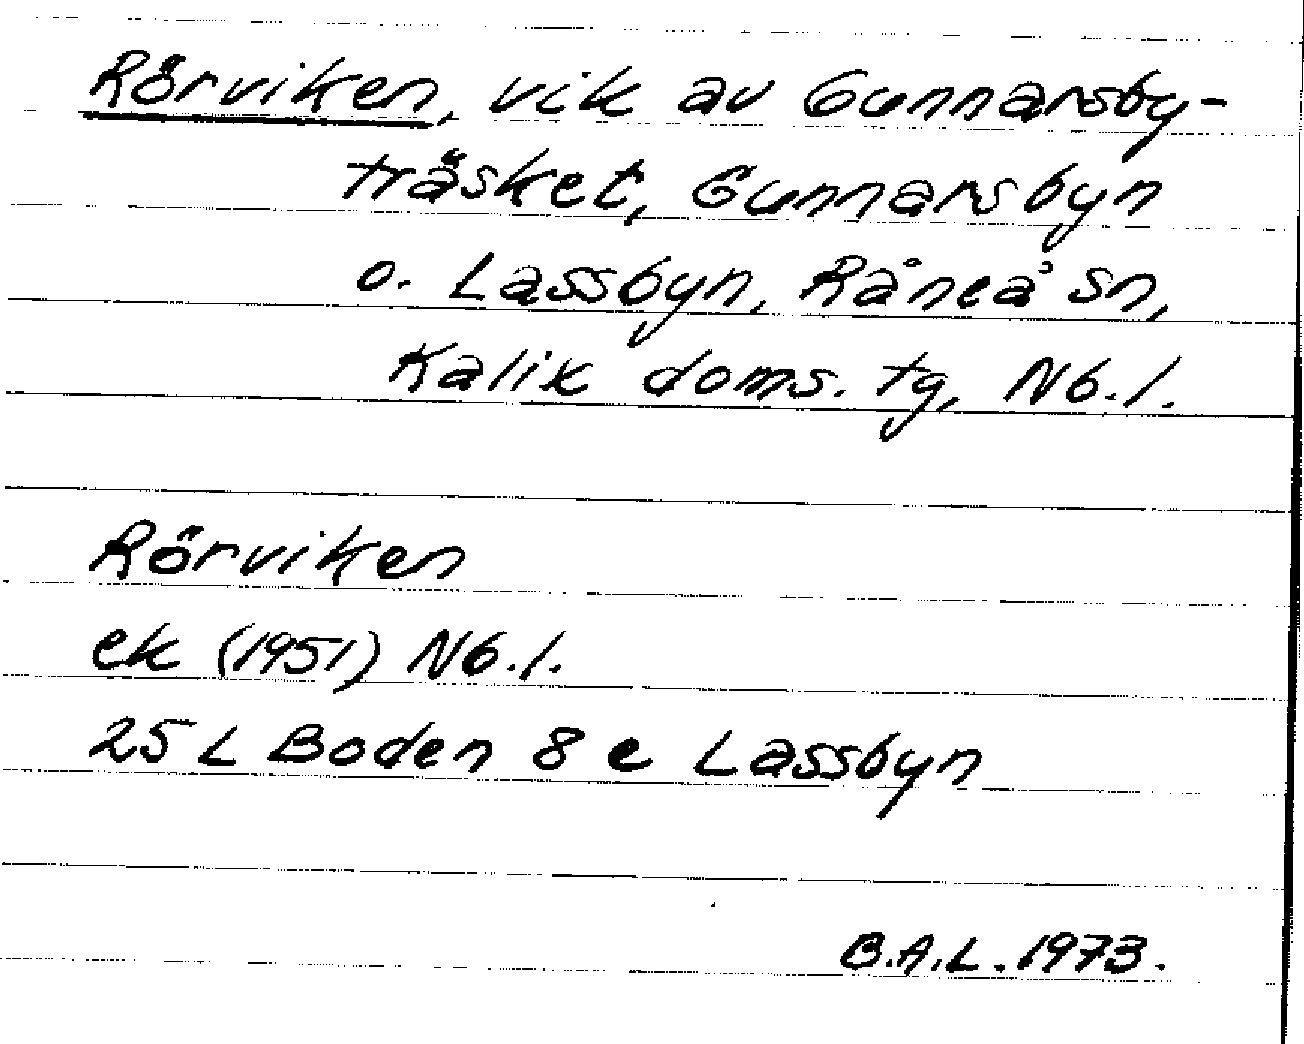 Rörviken, vik av Gunnarsby-
träsket, Gunnarsbyn
o. Lassbyn, Råneå sn,
Kalix doms. tg, Nb.l.
Rörviken
ek (1951) Nb.l.
25 L Boden 8 e Lassbyn
B.A.L. 1973.